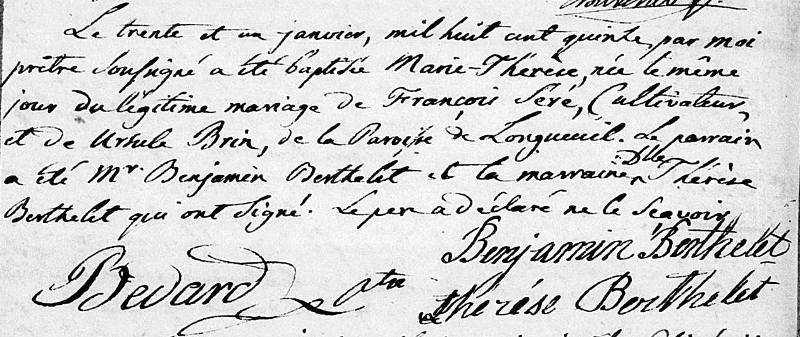 Le trente et un janvier, mil huit cent quinze, par moi
prêtre soussigné a été baptisée Marie-Thérèse, née le même
jour du légitime mariage de François Seré, Cultivateur,
et de Ursule Brin, de la Paroisse de Longueuil. Le parrain
a été Mr. Benjamin Berthelet et la marraine Dlle Thérèse
Berthelet qui ont signé. Le pere a déclaré ne le Sçavoir
Benjamin Berthelet
Bedard ptre
thérése Berthelet